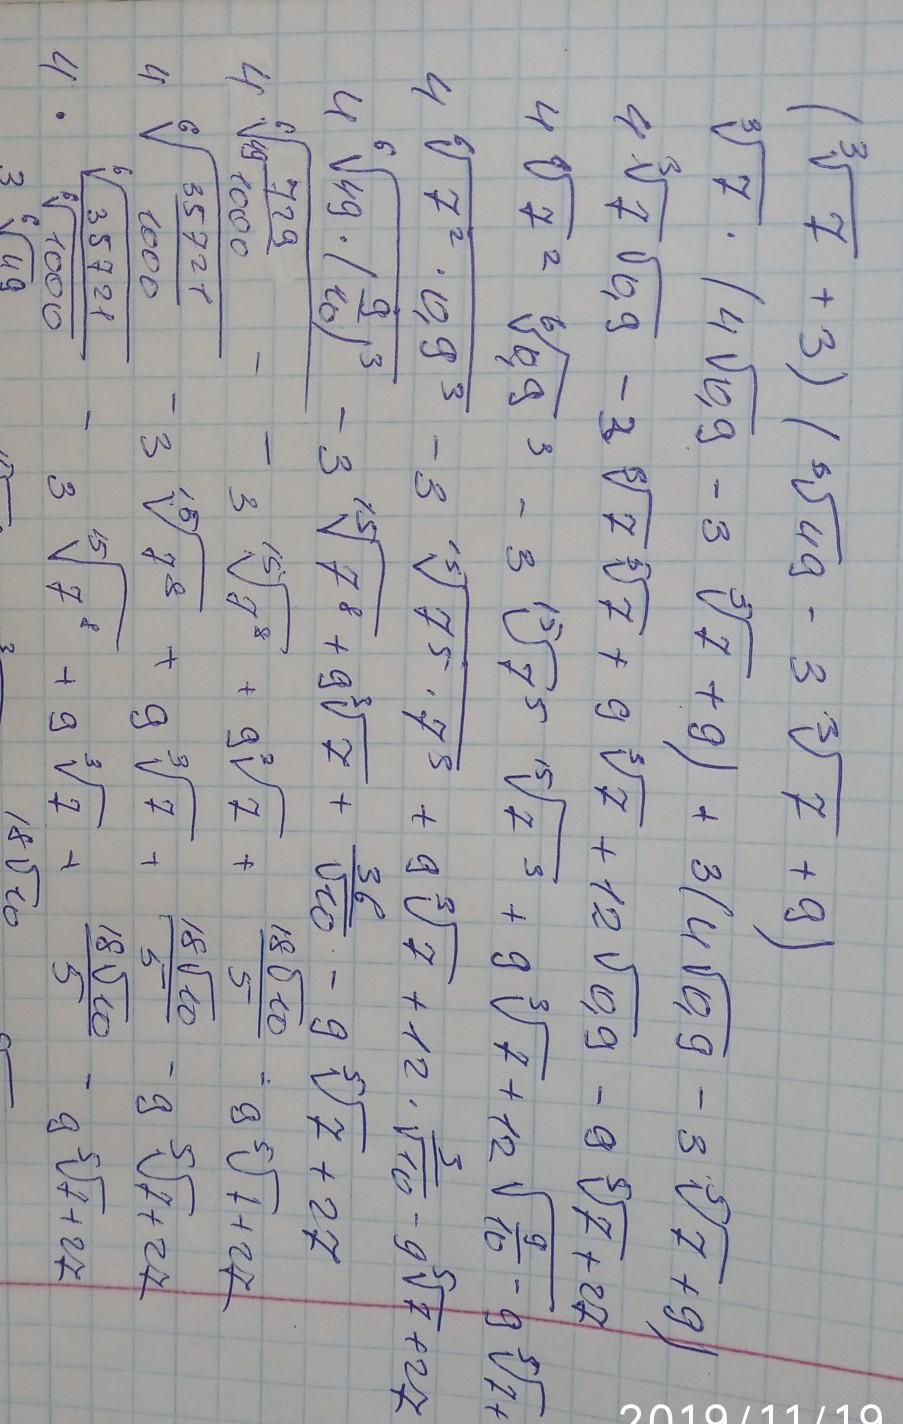 (∛7 + 3)(⁶√49 - 3 ∛7 + 9)
∛7 · (4√0,9 - 3 ⁵√7 + 9) + 3(4√0,9 - 3 ⁵√7 + 9)
4 ∛7 √0,9 - 3 ∛7 ⁵√7 + 9 ∛7 + 12 √0,9 - 9 ⁵√7 + 27
4 ⁶√7² ⁶√0,9³ - 3 ¹⁵√7⁵ ¹⁵√7³ + 9 ∛7 + 12 √9/10 - 9 ⁵√7 +
4 ⁶√7² · 0,9³ - 3 ¹⁵√7⁵ · 7³ + 9 ∛7 + 12 · 3/√10 - 9 ⁵√7 + 27
4 ⁶√49 · (9/10)³ - 3 ¹⁵√7⁸ + 9 ∛7 + 36/√10 - 9 ⁵√7 + 27
4 ⁶√49 729/1000 - - 3 ¹⁵√7⁸ + 9 ∛7 + 18√10/5 - 9 ⁵√7 + 27
4 ⁶√35721/1000 - 3 ¹⁵√7⁸ + 9 ∛7 + 18√10/5 - 9 ⁵√7 + 27
4 · ⁶√35721/⁶√1000 - 3 ¹⁵√7⁸ + 9 ∛7 + 18√10/5 - 9 ⁵√7 + 27
3 ⁶√49 18√10
2019/11/19